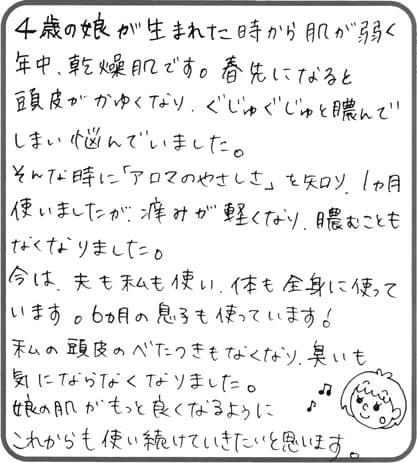 4歳の娘が生まれた時から肌が弱く
年中、乾燥肌です。春先になると
頭皮がかゆくなり、ぐじゅぐじゅと膿んで
しまい悩んでいました。
そんな時に「アロマのやさしさ」を知り、1カ月
使いましたが、痒みが軽くなり、膿むことも
なくなりました。
今は、夫も私も使い、体も全身に使って
います。6カ月の息子も使っています！
私の頭皮のべたつきもなくなり、臭いも
気にならなくなりました。
娘の肌がもっと良くなるように
これからも使い続けていきたいと思います。